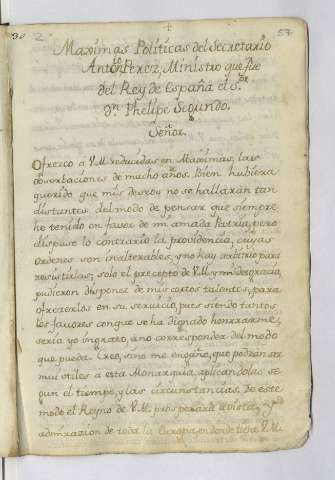 2
57
Maximas Politicas del Secretario
Antº Perez, Ministro que fue
del Rey de España el Sºr
Dn Phelipe Segundo.
Señor.
Ofrezco á V.M. reducidas en Maximas, las
observaciones de muchos años. Bien hubiera
querido que mis deseos no se hallaran tan
distantes del modo de pensar que siempre
he tenido en favor de mi amada Patria, pero
dispuso lo contrario la providencia, cuyas
ordenes son inalterables, y no hay arvitrio para
resistirlas; solo el precepto de V.M. y mi desgracia,
pudieron disponer de mis cortos talentos, para
ofrezerlos en su servicio, pues siendo tantos
los favores con que se ha dignado honrrarme,
seria yo ingrato, á no corresponder del modo
que pueda. Creo, sino me engaño, que podrán ser
mui utiles a esta Monarquia, aplicandolas se
gun el tiempo, y las circunstancias. De este
modo el Reyno de V.M. prosperará á vista, y
admirazion de toda la Europa, en donde tiene V.M.